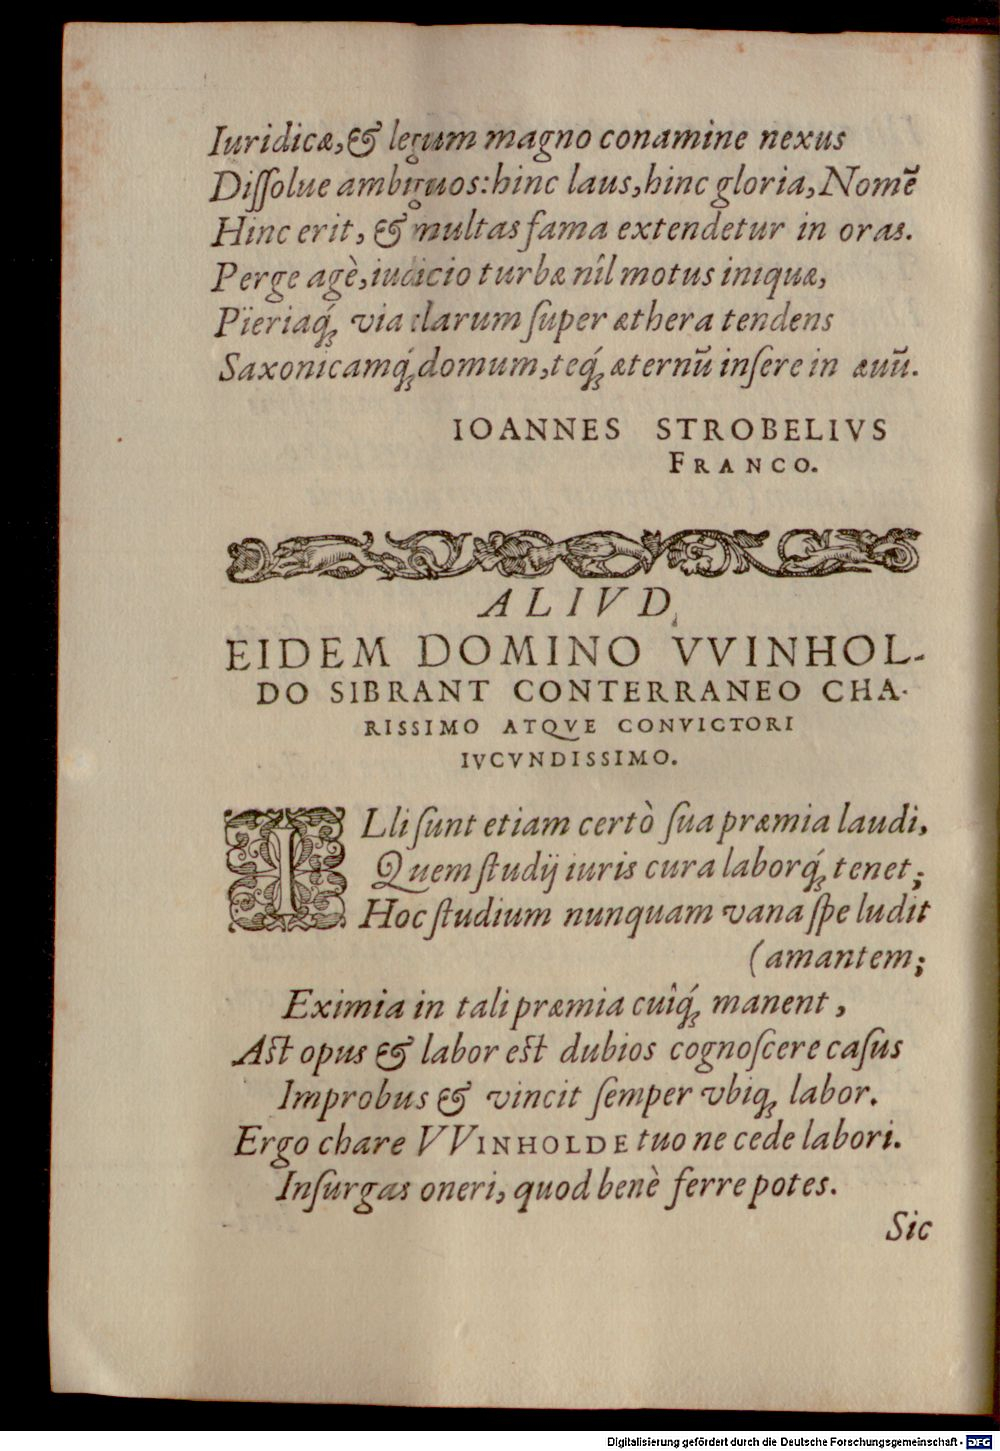 Iuridicæ, & legum magno conamine nexus
Diſſolue ambiguos: hinc laus, hinc gloria, Nomē
Hinc erit, & multas fama extendetur in oras.
Perge agè, iudicio turbæ nîl motus iniquæ,
Pïeriaq́; via clarum ſuper æthera tendens
Saxonicamq́; domum, teq́; æternū inſere in æuū.
IOANNES STROBELIVS
FRANCO.
ALIVD,
EIDEM DOMINO VVINHOL-
DO SIBRANT CONTERRANEO CHA-
RISSIMO ATQVE CONVICTORI
IVCVNDISSIMO.
ILli ſunt etiam certò ſua præmia laudi,
Quem ſtudij iuris cura laborq́; tenet;
Hoc ſtudium nunquam vana ſpe ludit
(amantem;
Eximia in tali præmia cuîq́; manent,
Aſt opus & labor eſt dubios cognoſcere caſus
Improbus & vincit ſemper vbiq; labor.
Ergo chare VVINHOLDE tuo ne cede labori.
Inſurgas oneri, quod benè ferre potes.
Sic
Digitalisierung gefördert durch die Deutsche Forschungsgemeinschaft - DFG